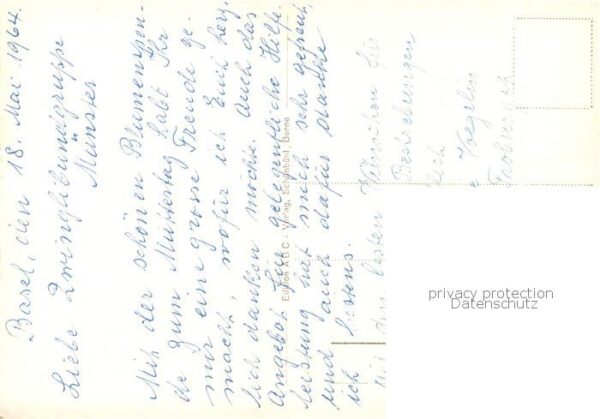 Basel, den 18. Mai 1964.
Liebe Zwinglibundgruppe
Münster
Mit der schönen Blumenspen-
de zum Muttertag habt Ihr
mir eine grosse Freude ge-
macht, wofür ich Euch herz.
lich danken möchte. Auch das
Angebot für gelegentliche Hilfe-
leistung hat mich sehr gefreut,
und auch dafür danke
ich bestens.
Mit den besten Wünschen für
Edition ABC - Verlag, Schönbühl, Berne
privacy protection
Datenschutz